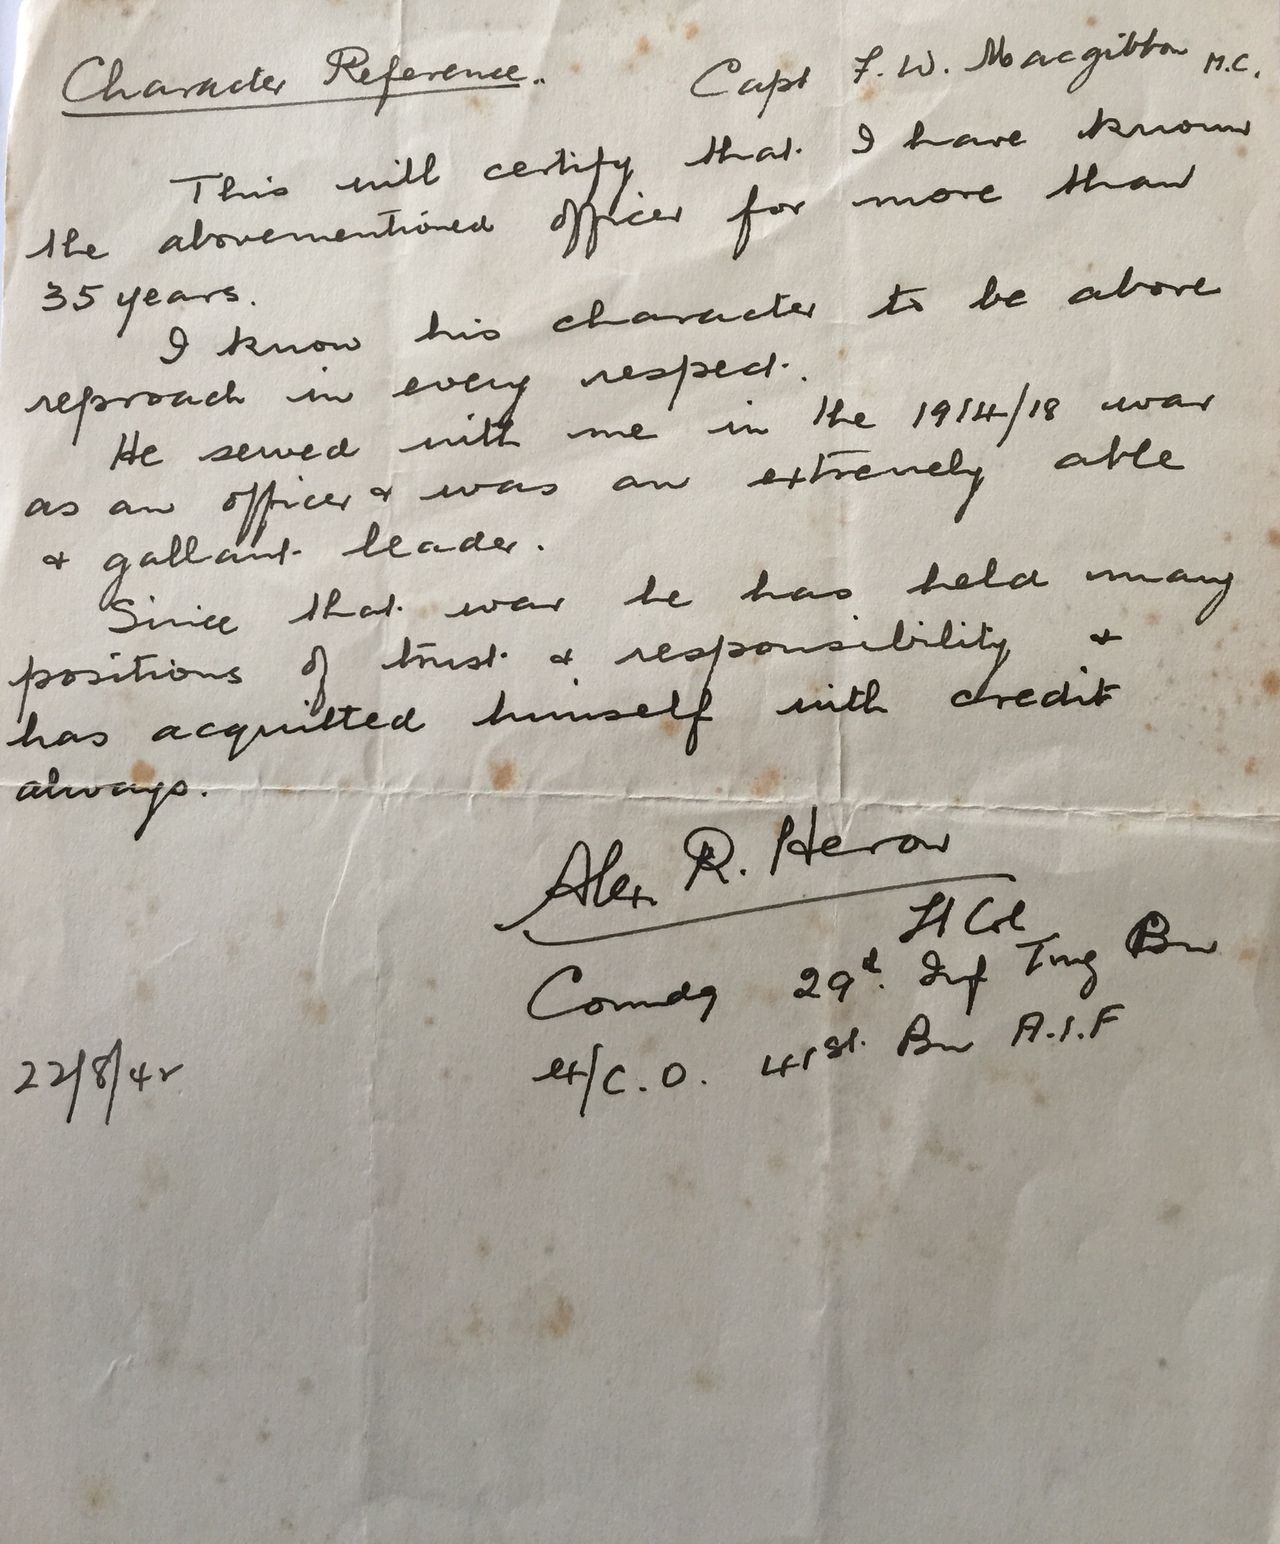 Character Reference.. Capt F. W. Macgibbon M.C.
This will certify that I have known
the abovementioned officer for more than
35 years.
I know his character to be above
reproach in every respect.
He served with me in the 1914/18 war
as an officer & was an extremely able
& gallant leader.
Since that war he has held many
positions of trust & responsibility &
has acquitted himself with credit
always.
Alex. R. Heron
Lt Col
Comdg 29th. Inf Tng Bn
ex/C.O. 41st. Bn A.I.F
22/8/42